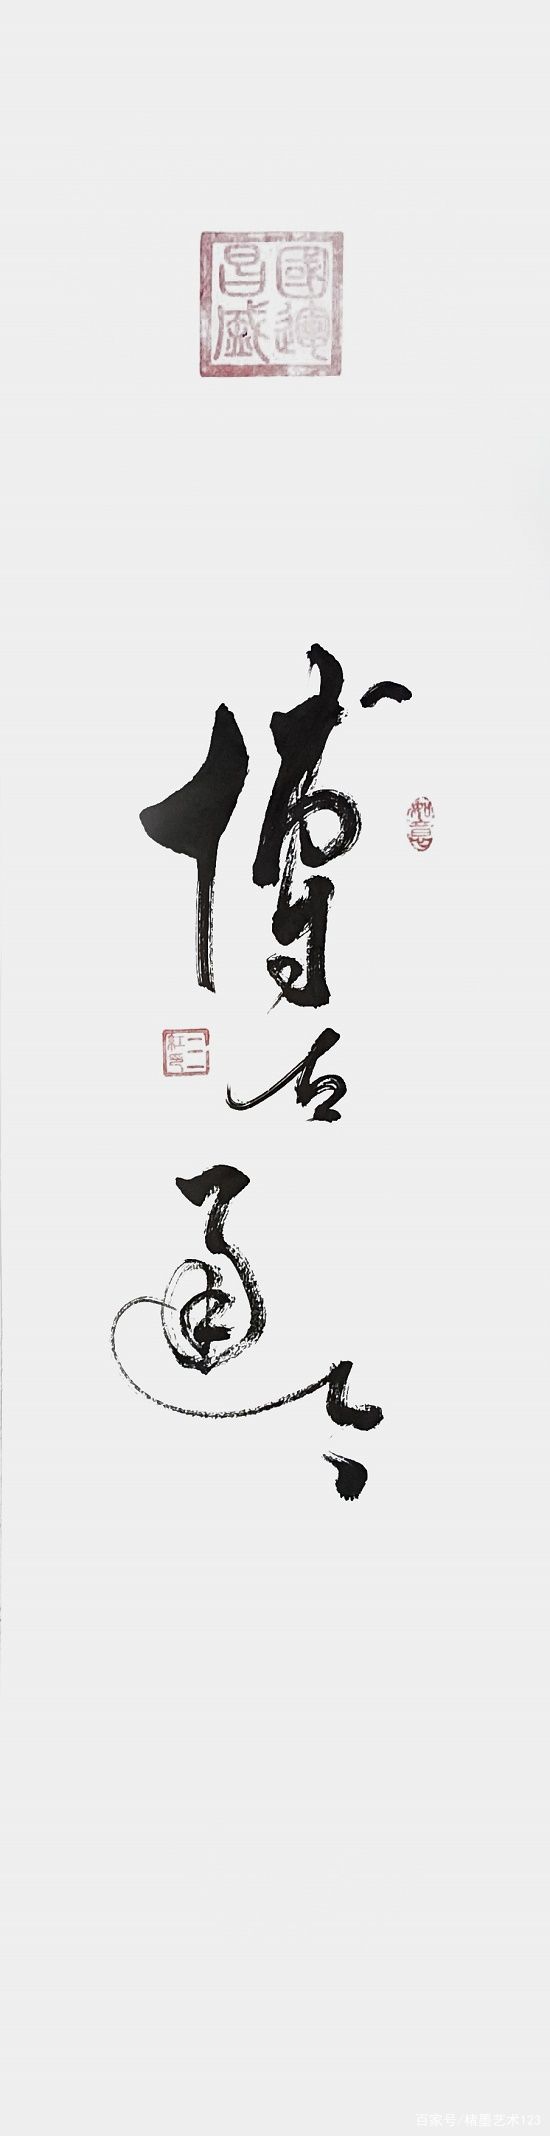 國運昌盛
博古通今
如意
百家号/楮墨艺术123